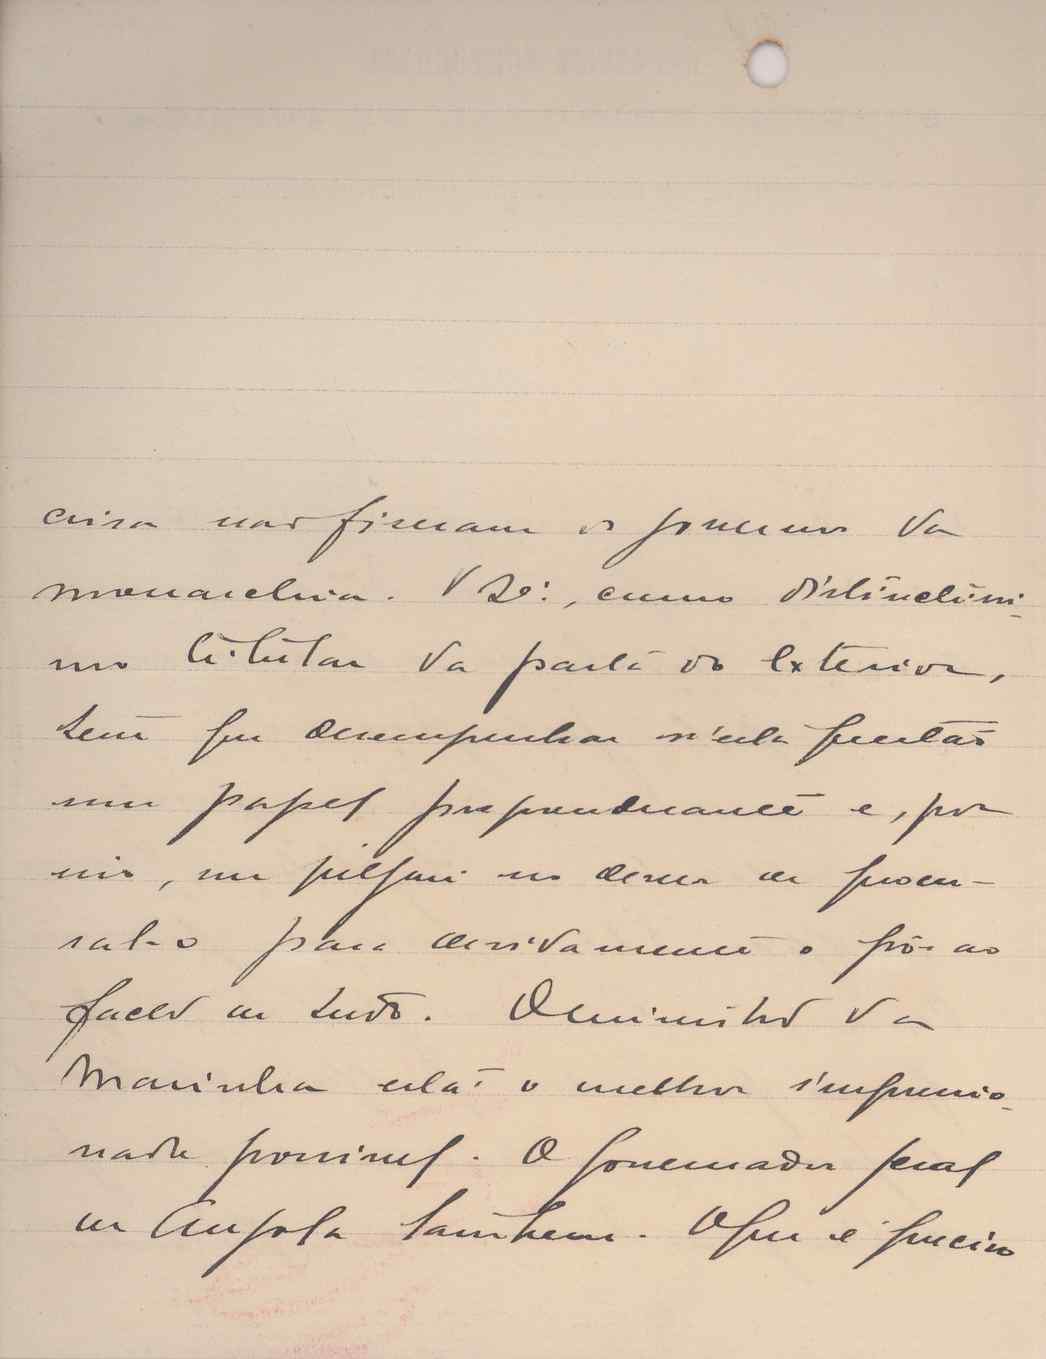 coisa não fizeram os governos da
monarchia. V. Sª:, como distinctissi-
mo titular da pasta do Exterior,
tem que desempenhar n'esta questão
um papel preponderante e, por
isso, me julguei no dever de procu-
ral-o para devidamente o pôr ao
facto de tudo. O ministro da
Marinha está o melhor impressio-
nado possivel. O governador geral
de Angola tambem. O que é preciso